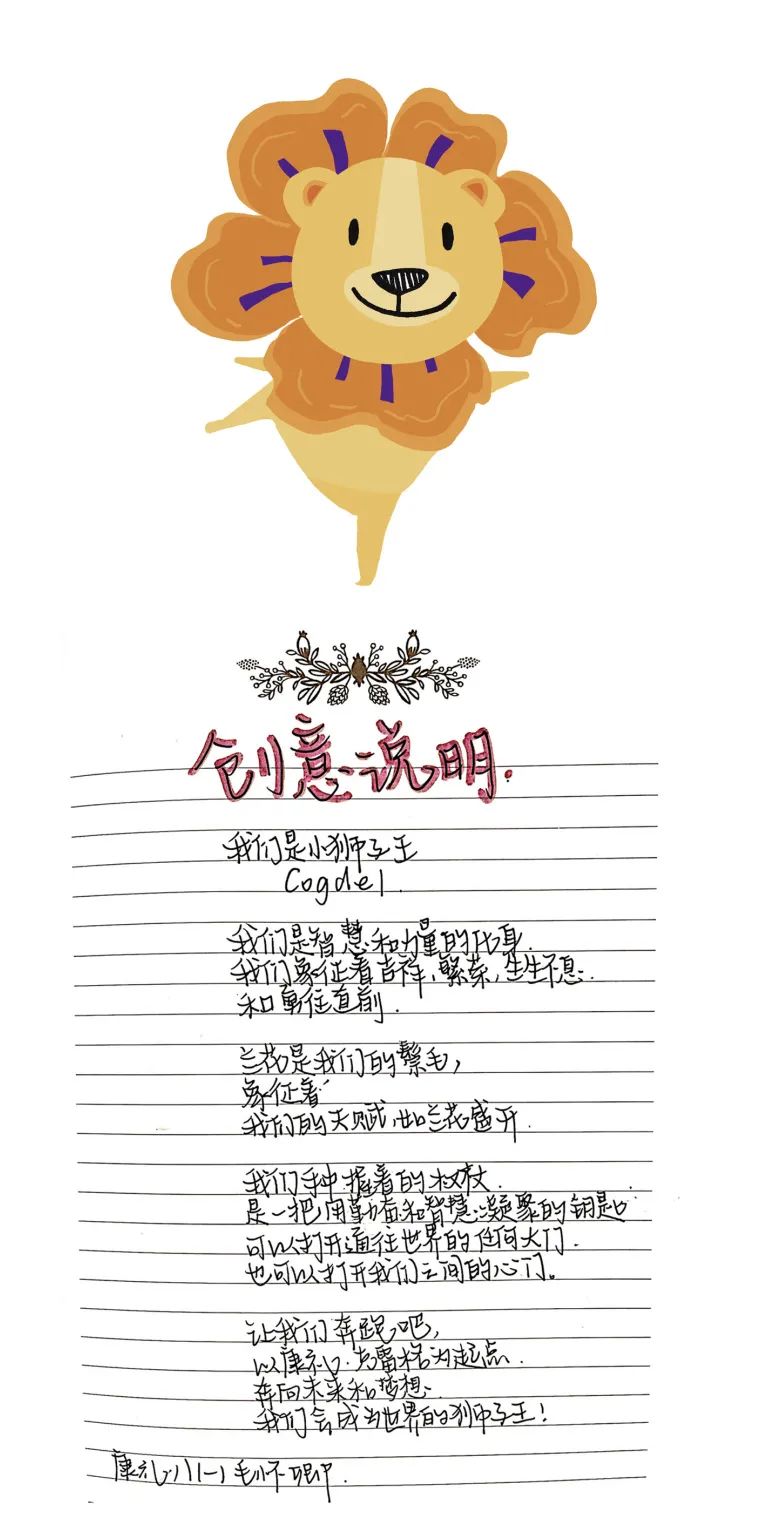 创意说明.
我们是小狮子王
Cogdel.
我们是智慧和力量的化身.
我们象征着吉祥,繁荣,生生不息.
和勇往直前.
兰花是我们的鬃毛,
象征着
我们的天赋,如兰花盛开.
我们手中握着的权杖.
是一把用勤奋和智慧凝聚的钥匙
可以打开通往世界的任何大门.
也可以打开我们之间的心门。
让我们奔跑吧,
以康礼·克雷格为起点.
奔向未来和梦想.
我们会成为世界的狮子王!
康礼 八(一) 毛怀